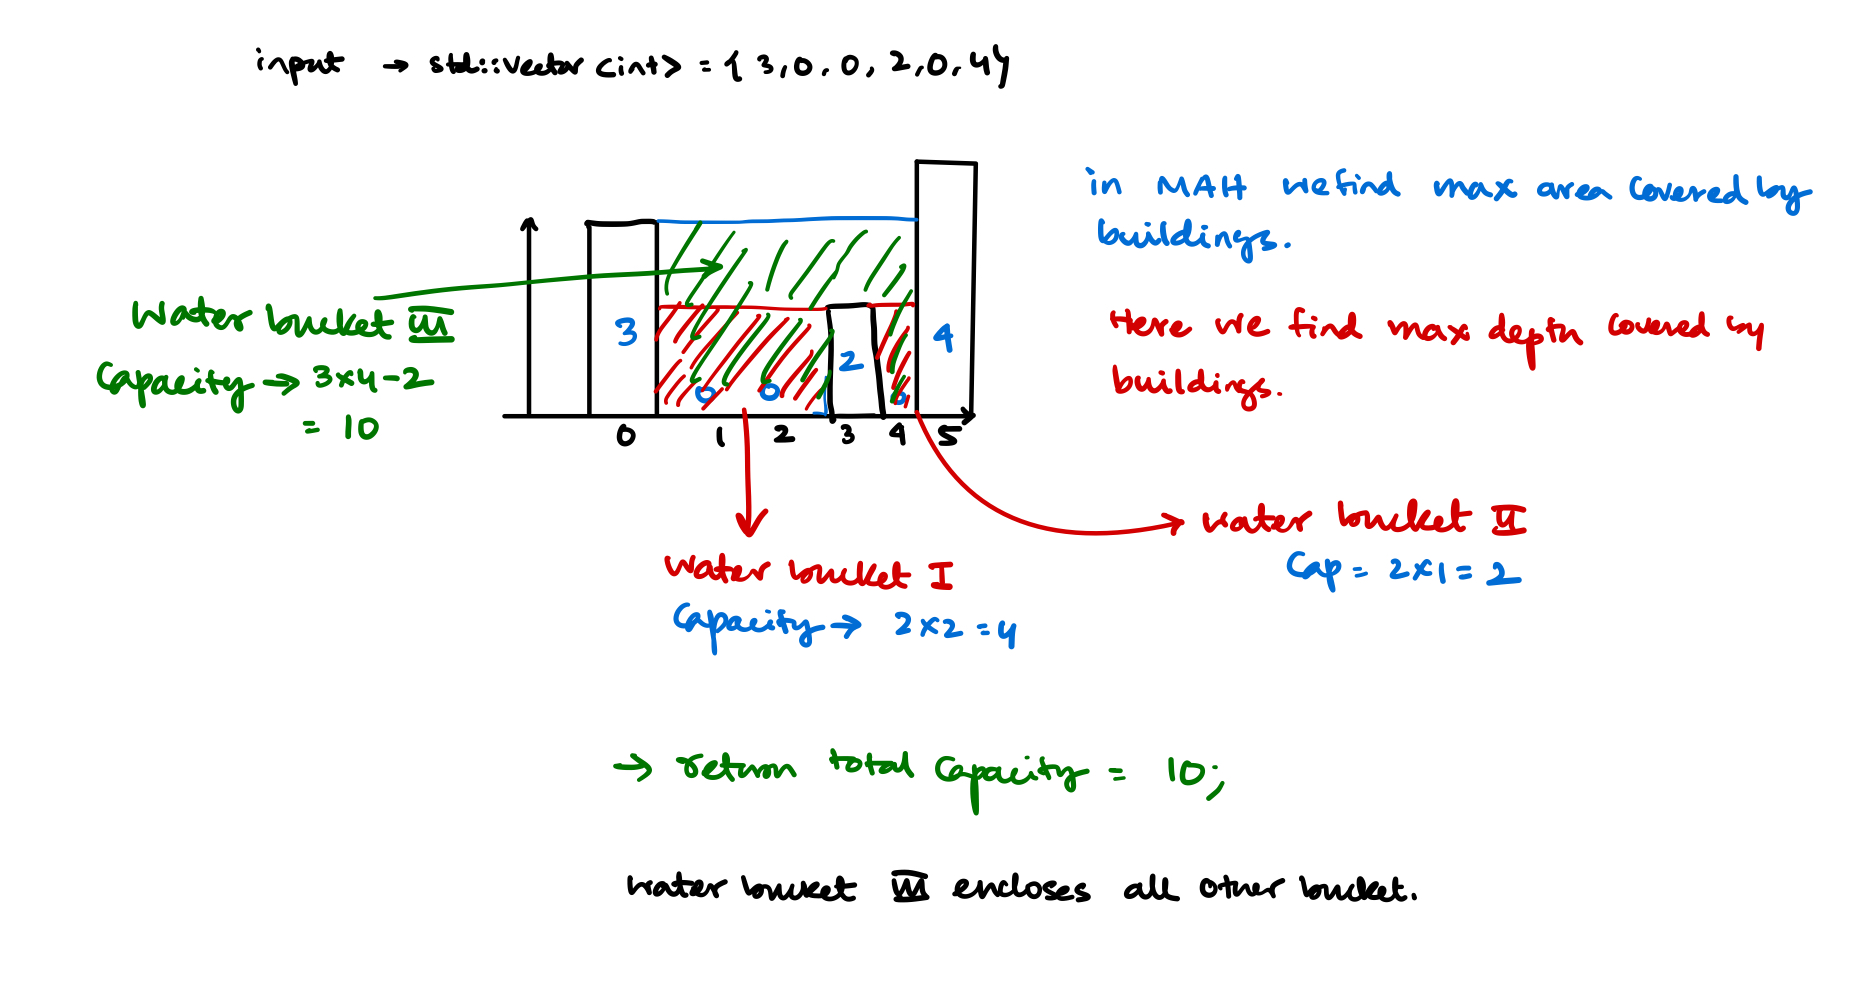 input → std::vector <int> = { 3,0,0,2,0,4}
in MAH we find max area covered by
buildings.
Here we find max depth covered by
buildings.
water bucket III
Capacity → 3×4-2
= 10
3
0
0
2
0
4
0 1 2 3 4 5
water bucket II
Cap = 2×1 = 2
water bucket I
Capacity → 2×2 = 4
→ return total capacity = 10;
water bucket III encloses all other bucket.